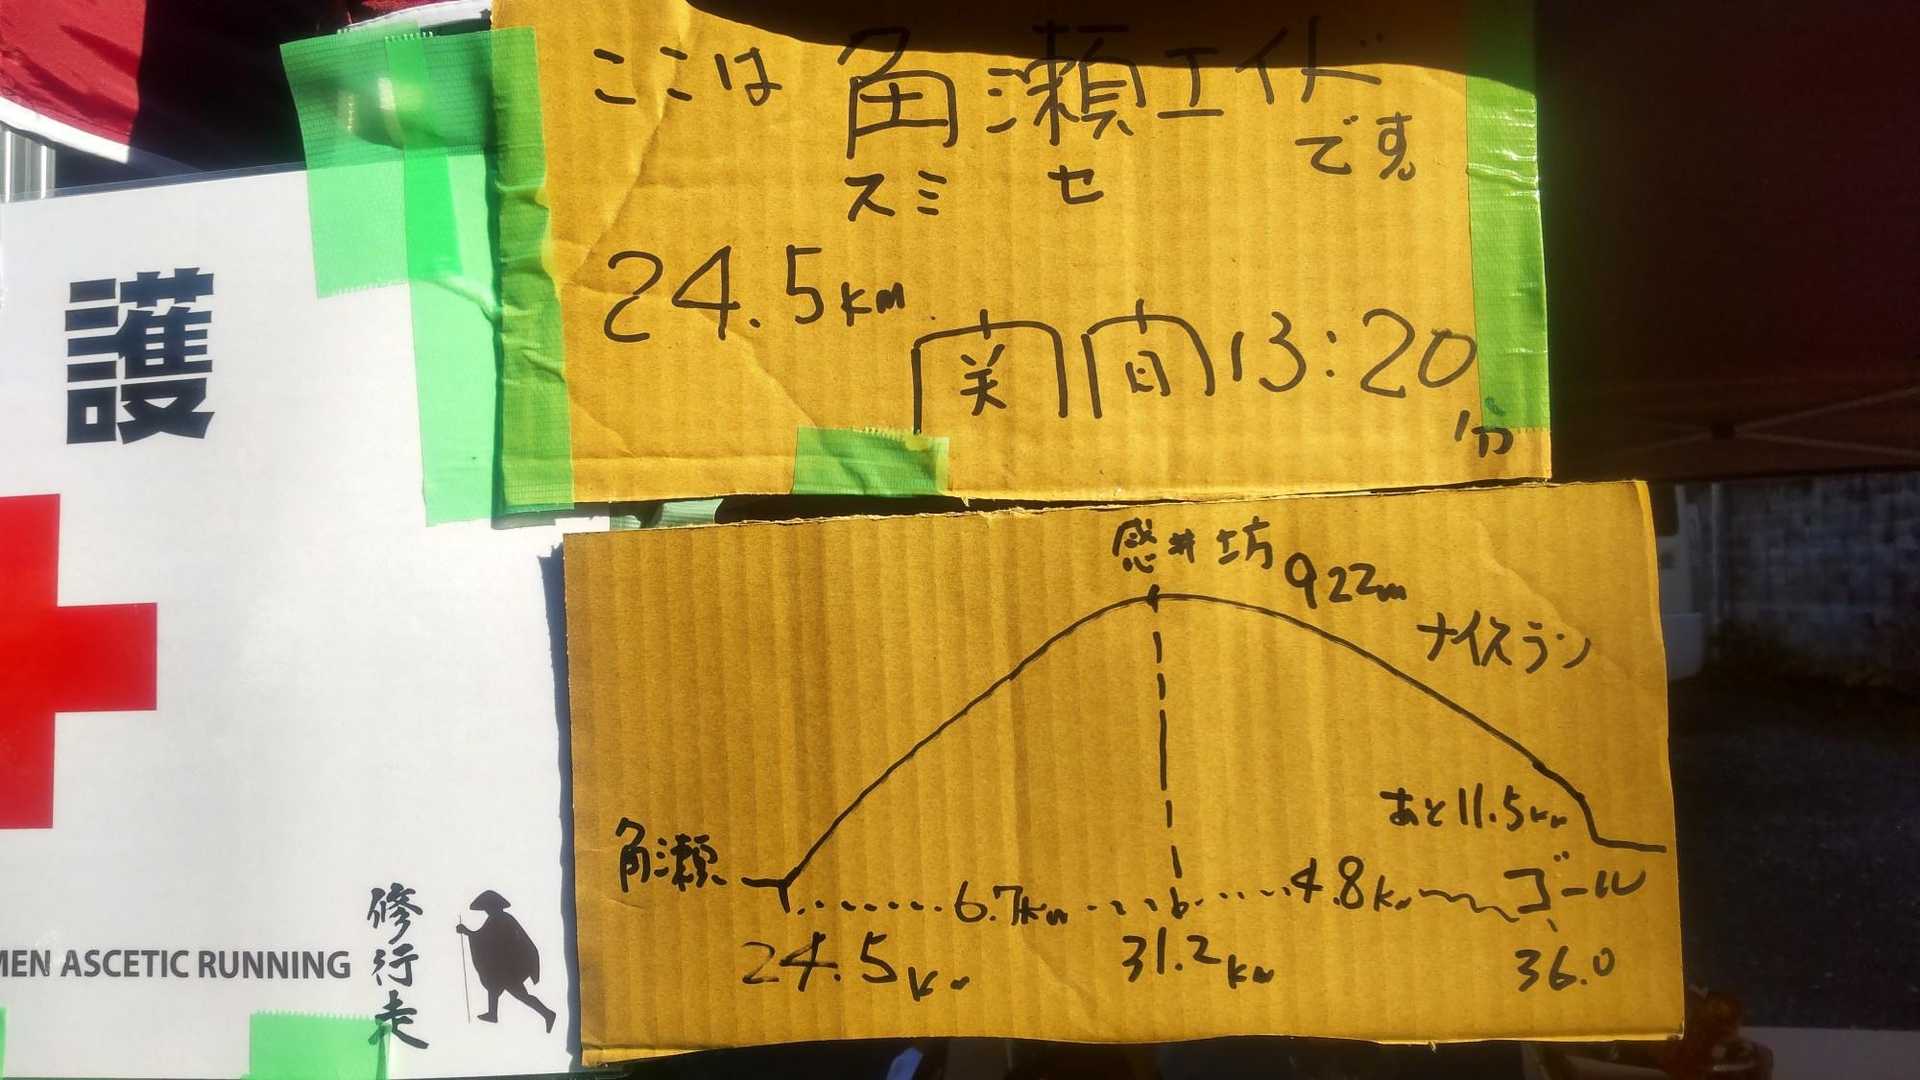 ここは角瀬エイド
です。
スミセ
24.5km
関門13:20
分
護
感井坊
922m
ナイスラン
あと11.5km
角瀬
6.7km
4.8km
ゴール
24.5km
31.2km
36.0
MEN ASCETIC RUNNING
修行走